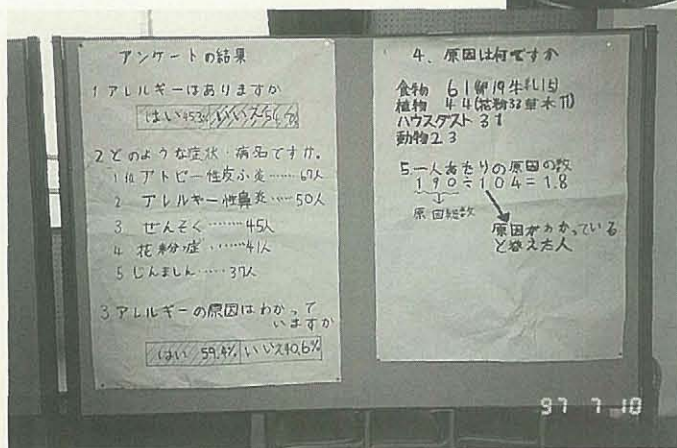 アンケートの結果
1 アレルギーはありますか
はい 45.3% いいえ 54.7%
2 どのような症状・病名ですか。
1位 アトピー性皮ふ炎……67人
2 アレルギー性鼻炎……50人
3 ぜんそく………45人
4 花粉症………41人
5 じんましん……37人
3 アレルギーの原因はわかって
いますか
はい 59.4% いいえ40.6%
4、原因は何ですか
食物 61(卵19牛乳15)
植物 44(花粉33草木11)
ハウスダスト 31
動物23
5一人あたりの原因の数
190÷104=1.8
原因総数
原因がわかっている
と答えた人
97 7 10